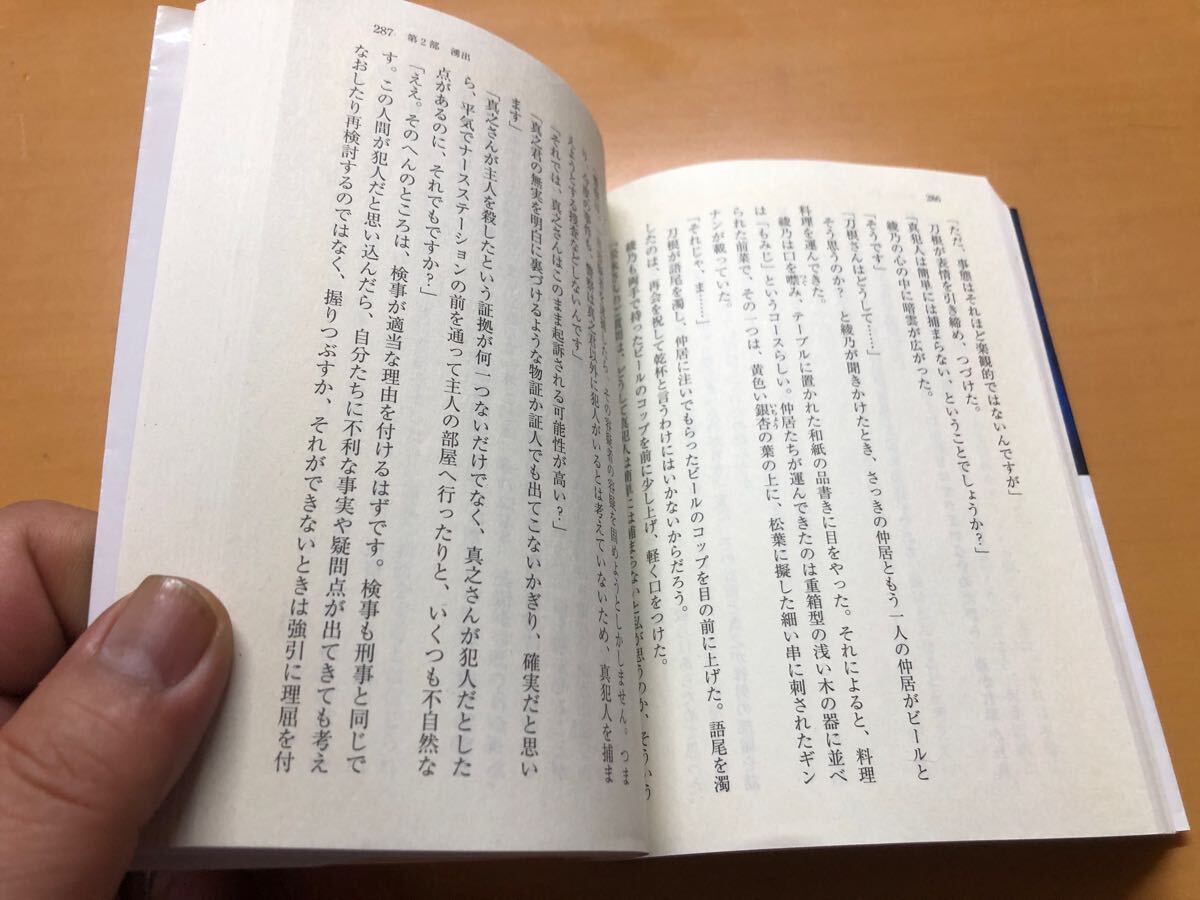 286
「ただ、事態はそれほど楽観的ではないんですが」
刀根が表情を引き締め、つづけた。
「真犯人は簡単には捕まらない、ということでしょうか？」
綾乃の心の中に暗雲が広がった。
「そうです」
「刀根さんはどうして……」
そう思うのか？　と綾乃が聞きかけたとき、さっきの仲居ともう一人の仲居がビールと
料理を運んできた。
綾乃は口を噤み、テーブルに置かれた和紙の品書きに目をやった。それによると、料理
は「もみじ」というコースらしい。仲居たちが運んできたのは重箱型の浅い木の器に並べ
られた前菜で、その一つは、黄色い銀杏の葉の上に、松葉に擬した細い串に刺されたギン
ナンが載っていた。
「それじゃ、ま……」
刀根が語尾を濁し、仲居に注いでもらったビールのコップを目の前に上げた。語尾を濁
したのは、再会を祝して乾杯と言うわけにはいかないからだろう。
綾乃も両手で持ったビールのコップを前に少し上げ、軽く口をつけた。
質問は、どうして真犯人は簡単には捕まらないと私が思うのか、そういう
287　第2部　湧出
その容疑者の容疑を固めようとしかしません。つま
り、今度の事件も、警察は真之君以外に犯人がいるとは考えていないため、真犯人を捕ま
えようとする捜査などしないんです」
「それでは、真之さんはこのまま起訴される可能性が高い？」
「真之君の無実を明白に裏づけるような物証か証人でも出てこないかぎり、確実だと思い
ます」
「真之さんが主人を殺したという証拠が何一つないだけでなく、真之さんが犯人だとした
ら、平気でナースステーションの前を通って主人の部屋へ行ったりと、いくつも不自然な
点があるのに、それでもですか？」
「ええ。そのへんのところは、検事が適当な理由を付けるはずです。検事も刑事と同じで
す。この人間が犯人だと思い込んだら、自分たちに不利な事実や疑問点が出てきても考え
なおしたり再検討するのではなく、握りつぶすか、それができないときは強引に理屈を付